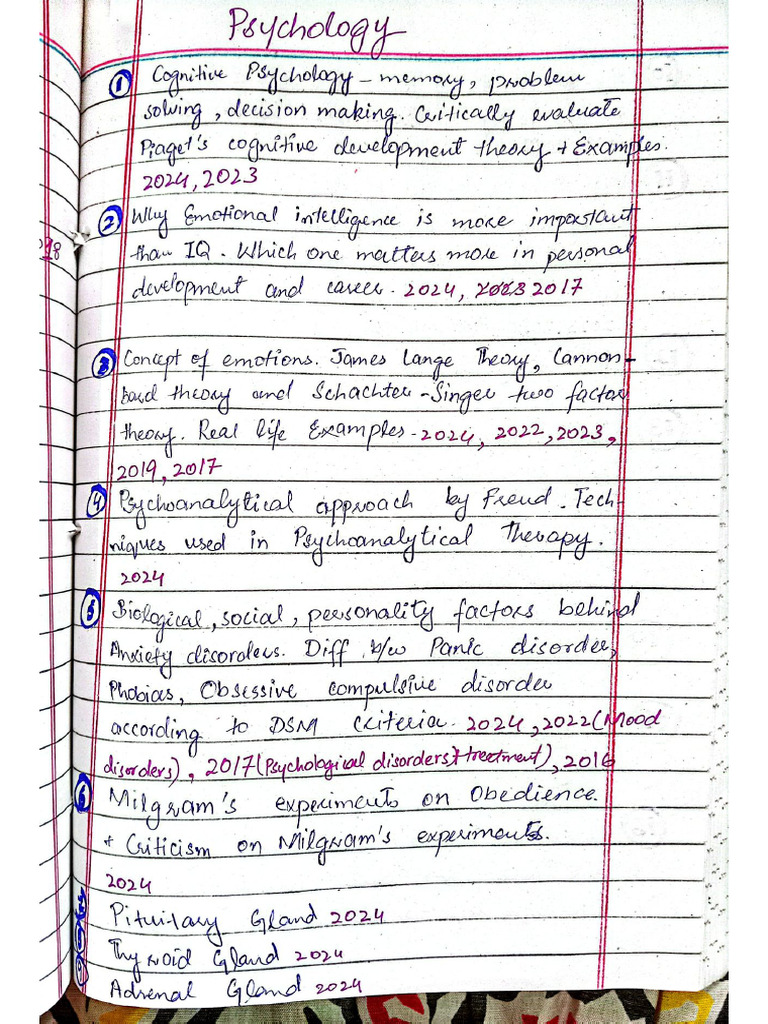 Psychology
① Cognitive Psychology - memory, problem
solving, decision making. Critically evaluate
Piaget's cognitive development theory + Examples.
2024, 2023
② Why Emotional intelligence is more important
than IQ. Which one matters more in personal
development and career. 2024, 2023 2017
③ Concept of emotions. James Lange Theory, Cannon-
Bard theory and Schachter-Singer two factor
theory. Real life Examples - 2024, 2022, 2023,
2019, 2017
④ Psychoanalytical approach by Freud. Tech-
niques used in Psychoanalytical Therapy.
2024
⑤ Biological, social, personality factors behind
Anxiety disorders. Diff b/w Panic disorder,
Phobias, Obsessive compulsive disorder
according to DSM criteria. 2024, 2022 (Mood
disorders), 2017 (Psychological disorders + treatment), 2016
⑥ Milgram's experiments on Obedience.
+ Criticism on Milgram's experiments.
2024
Pituitary Gland 2024
Thyroid Gland 2024
Adrenal Gland 2024